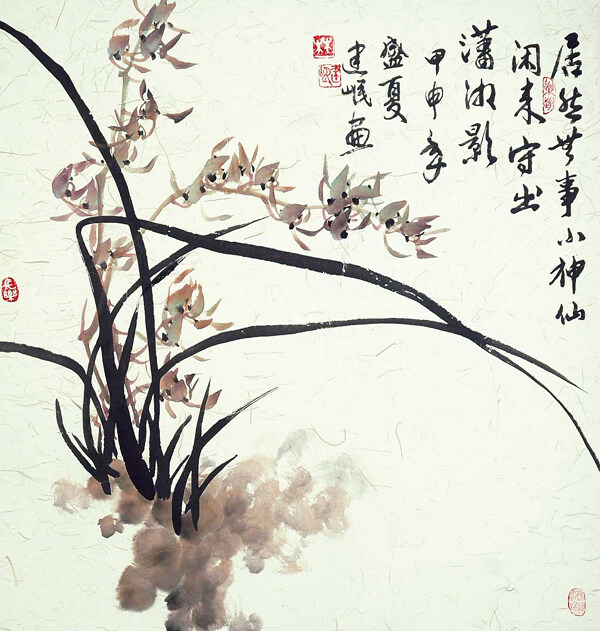 居然无事小神仙
闲来写出
潇湘影
甲申年
盛夏
建岷画